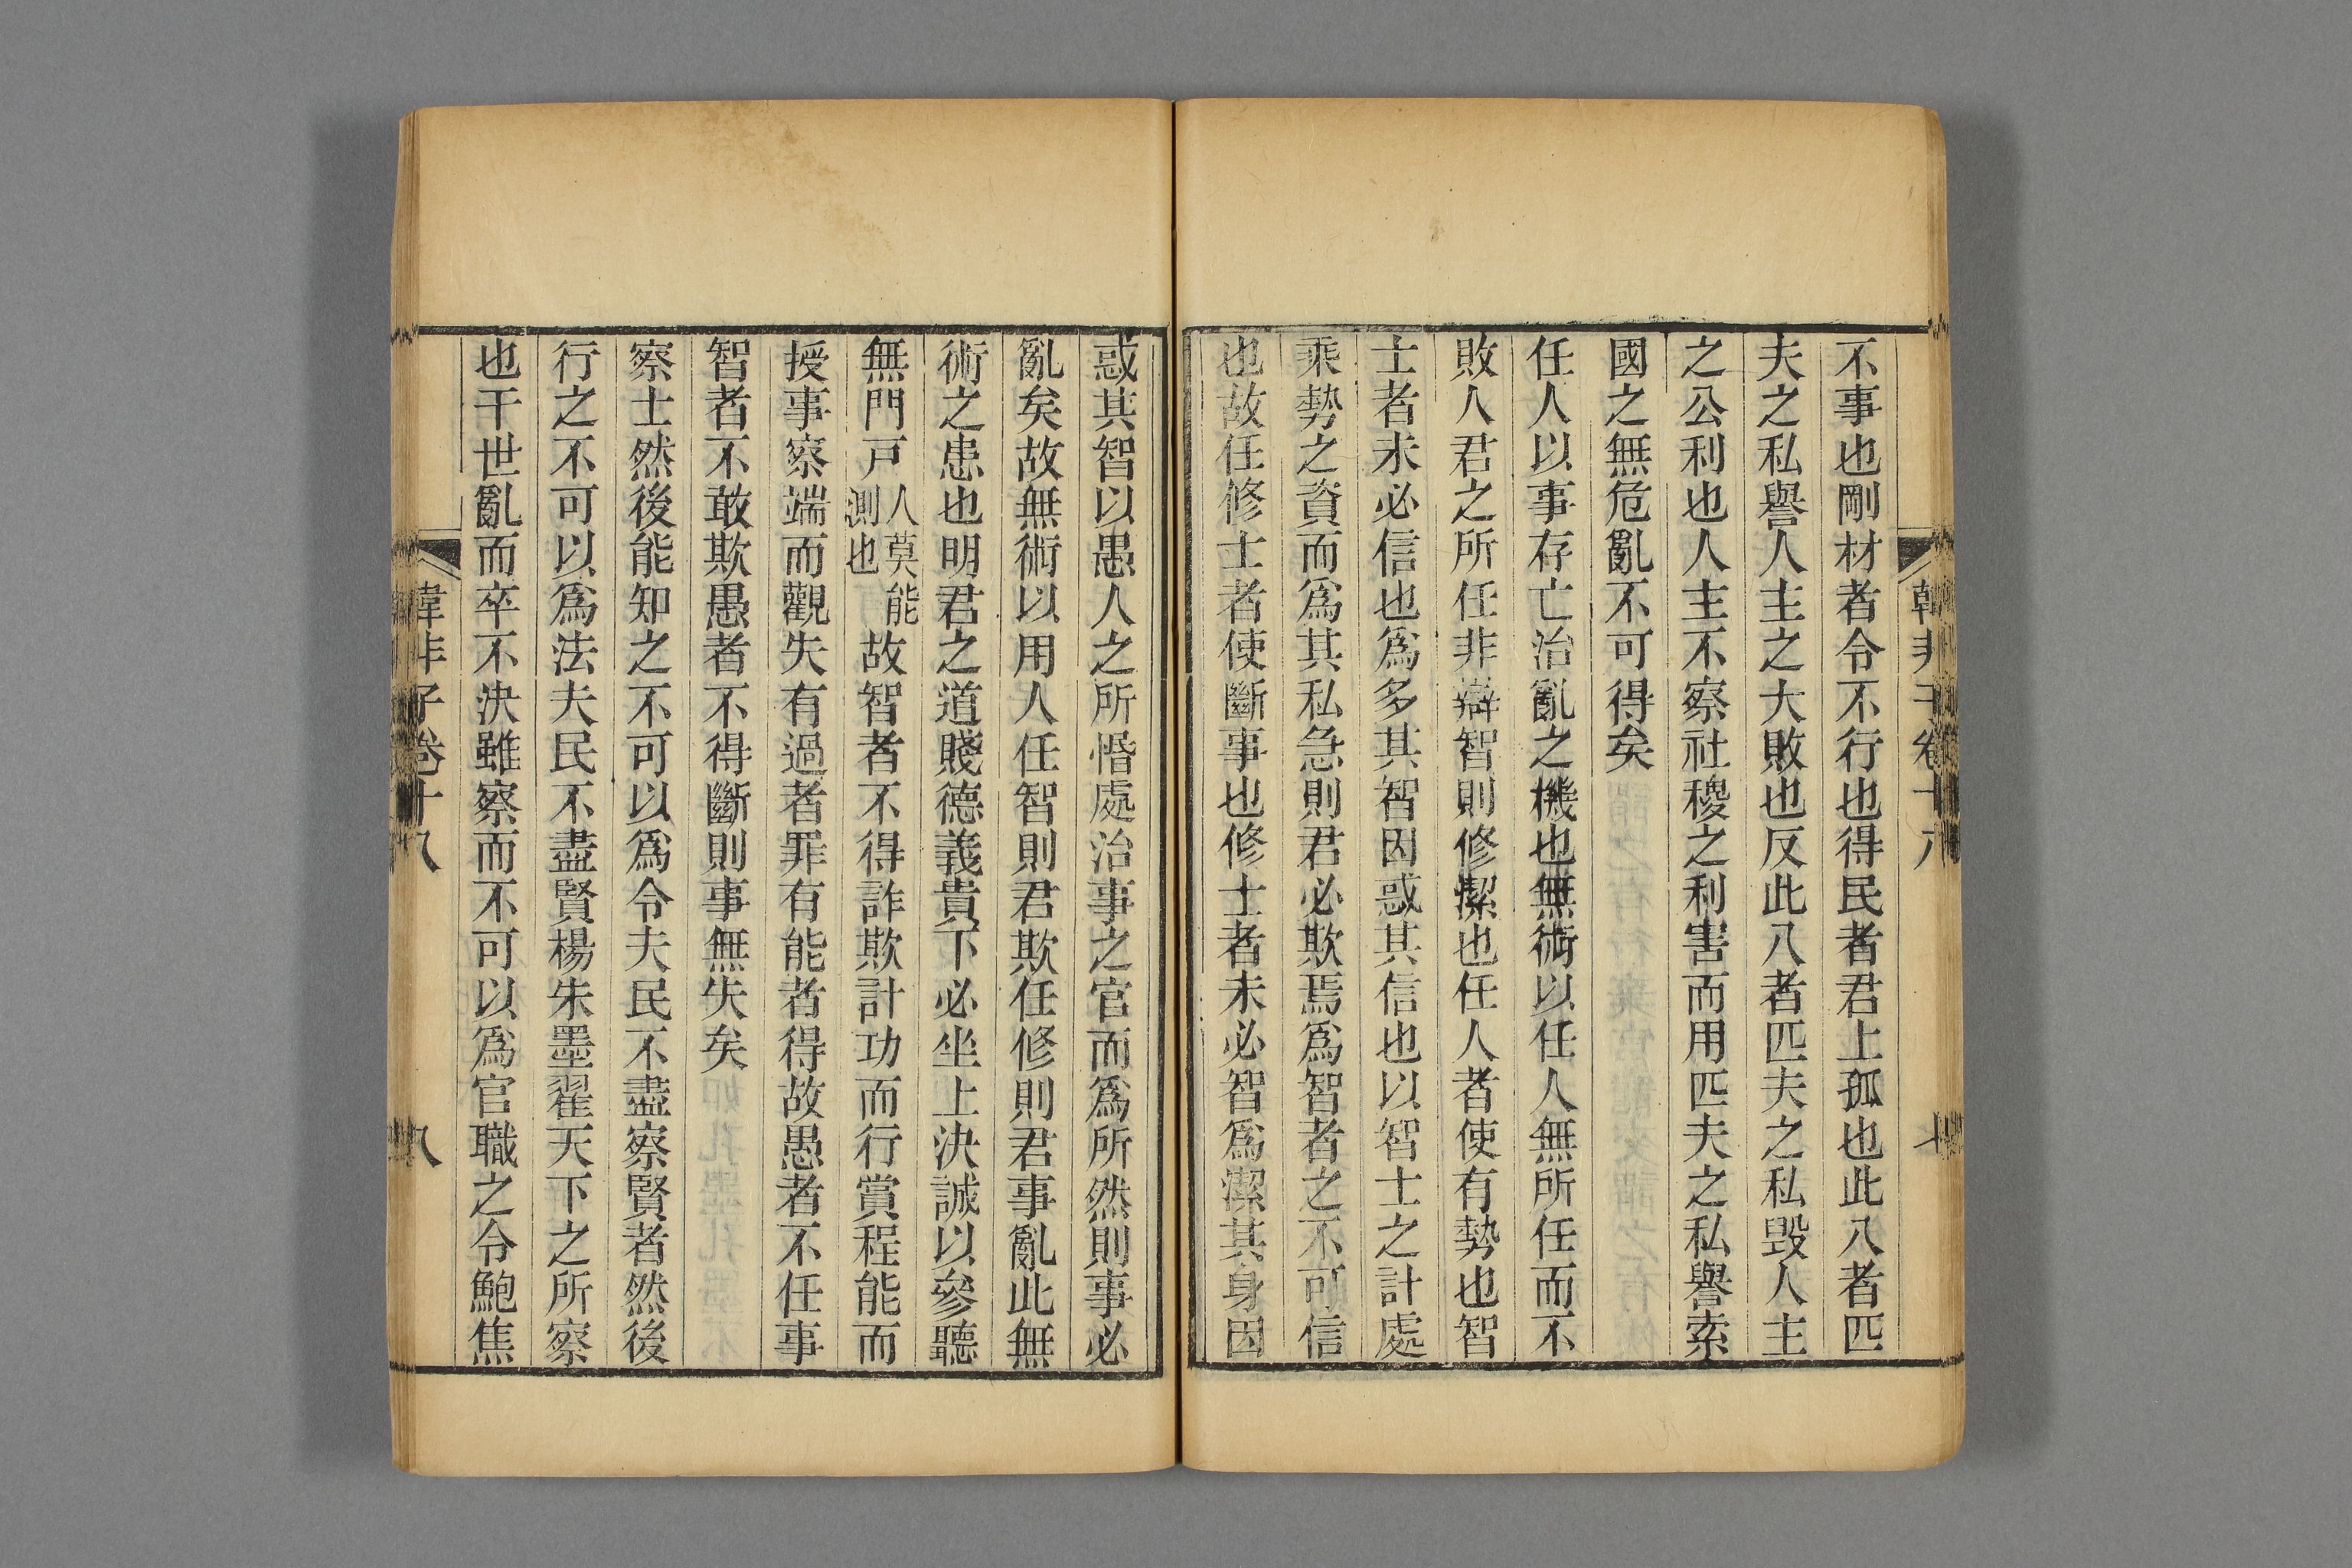 韓非子卷十八 七
不事也剛材者令不行也得民者君上孤也此八者匹
夫之私譽人主之大敗也反此八者匹夫之私毀人主
之公利也人主不察社稷之利害而用匹夫之私譽索
國之無危亂不可得矣
任人以事存亡治亂之機也無術以任人無所任而不
敗人君之所任非辯智則修潔也任人者使有勢也智
士者未必信也爲多其智因惑其信也以智士之計處
乘勢之資而爲其私急則君必欺焉爲智者之不可信
也故任修士者使斷事也修士者未必智爲潔其身因
惑其智以愚人之所惛處治事之官而爲所然則事必
亂矣故無術以用人任智則君欺任修則君事亂此無
術之患也明君之道賤德義貴下必坐上決誠以參聽
無門戸人莫能測也故智者不得詐欺計功而行賞程能而
授事察端而觀失有過者罪有能者得故愚者不任事
智者不敢欺愚者不得斷則事無失矣
察士然後能知之不可以爲令夫民不盡察賢者然後
行之不可以爲法夫民不盡賢楊朱墨翟天下之所察
也干世亂而卒不決雖察而不可以爲官職之令鮑焦
韓非子卷十八 八